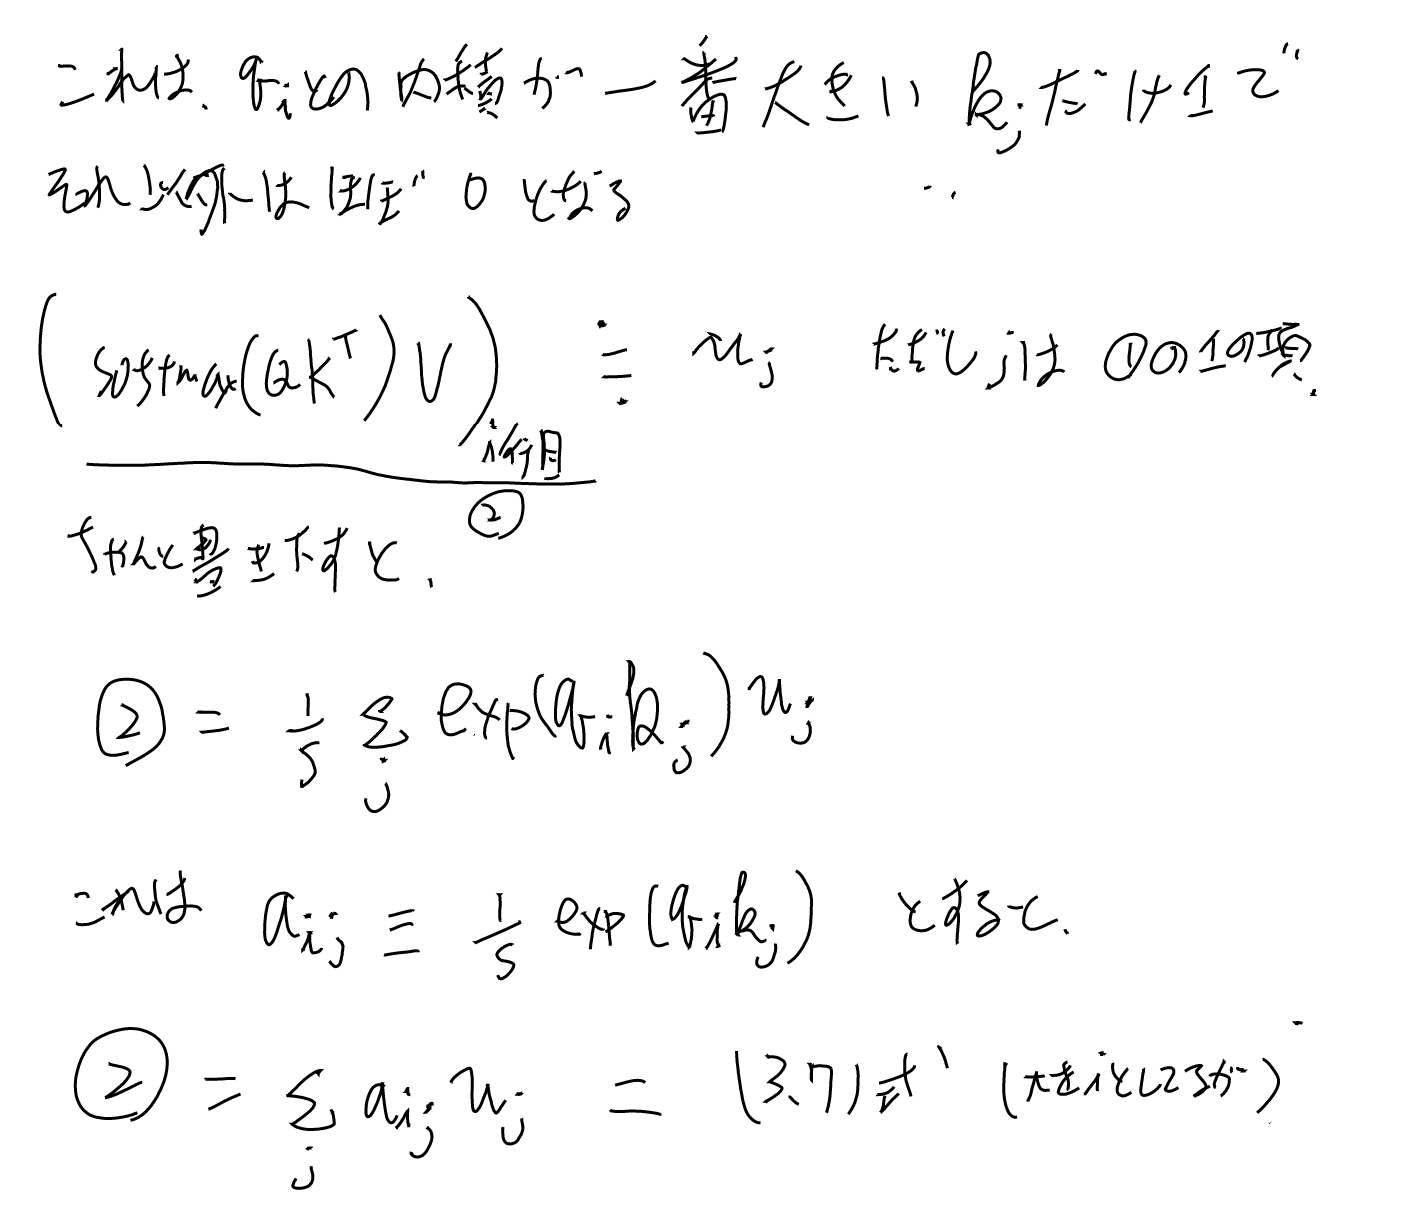 これは、q_iとの内積が一番大きい k_jだけ1で
それ以外はほぼ0となる
(softmax(QK^T)V)_i行目 ≒ u_j ただし jは ①の1の項.
②
ちゃんと書き下すと,
② = 1/S Σ_j exp(q_i k_j) u_j
これは a_ij ≡ 1/S exp(q_i k_j) とすると、
② = Σ_j a_ij u_j = (3.7)式 (をiとしてるが)